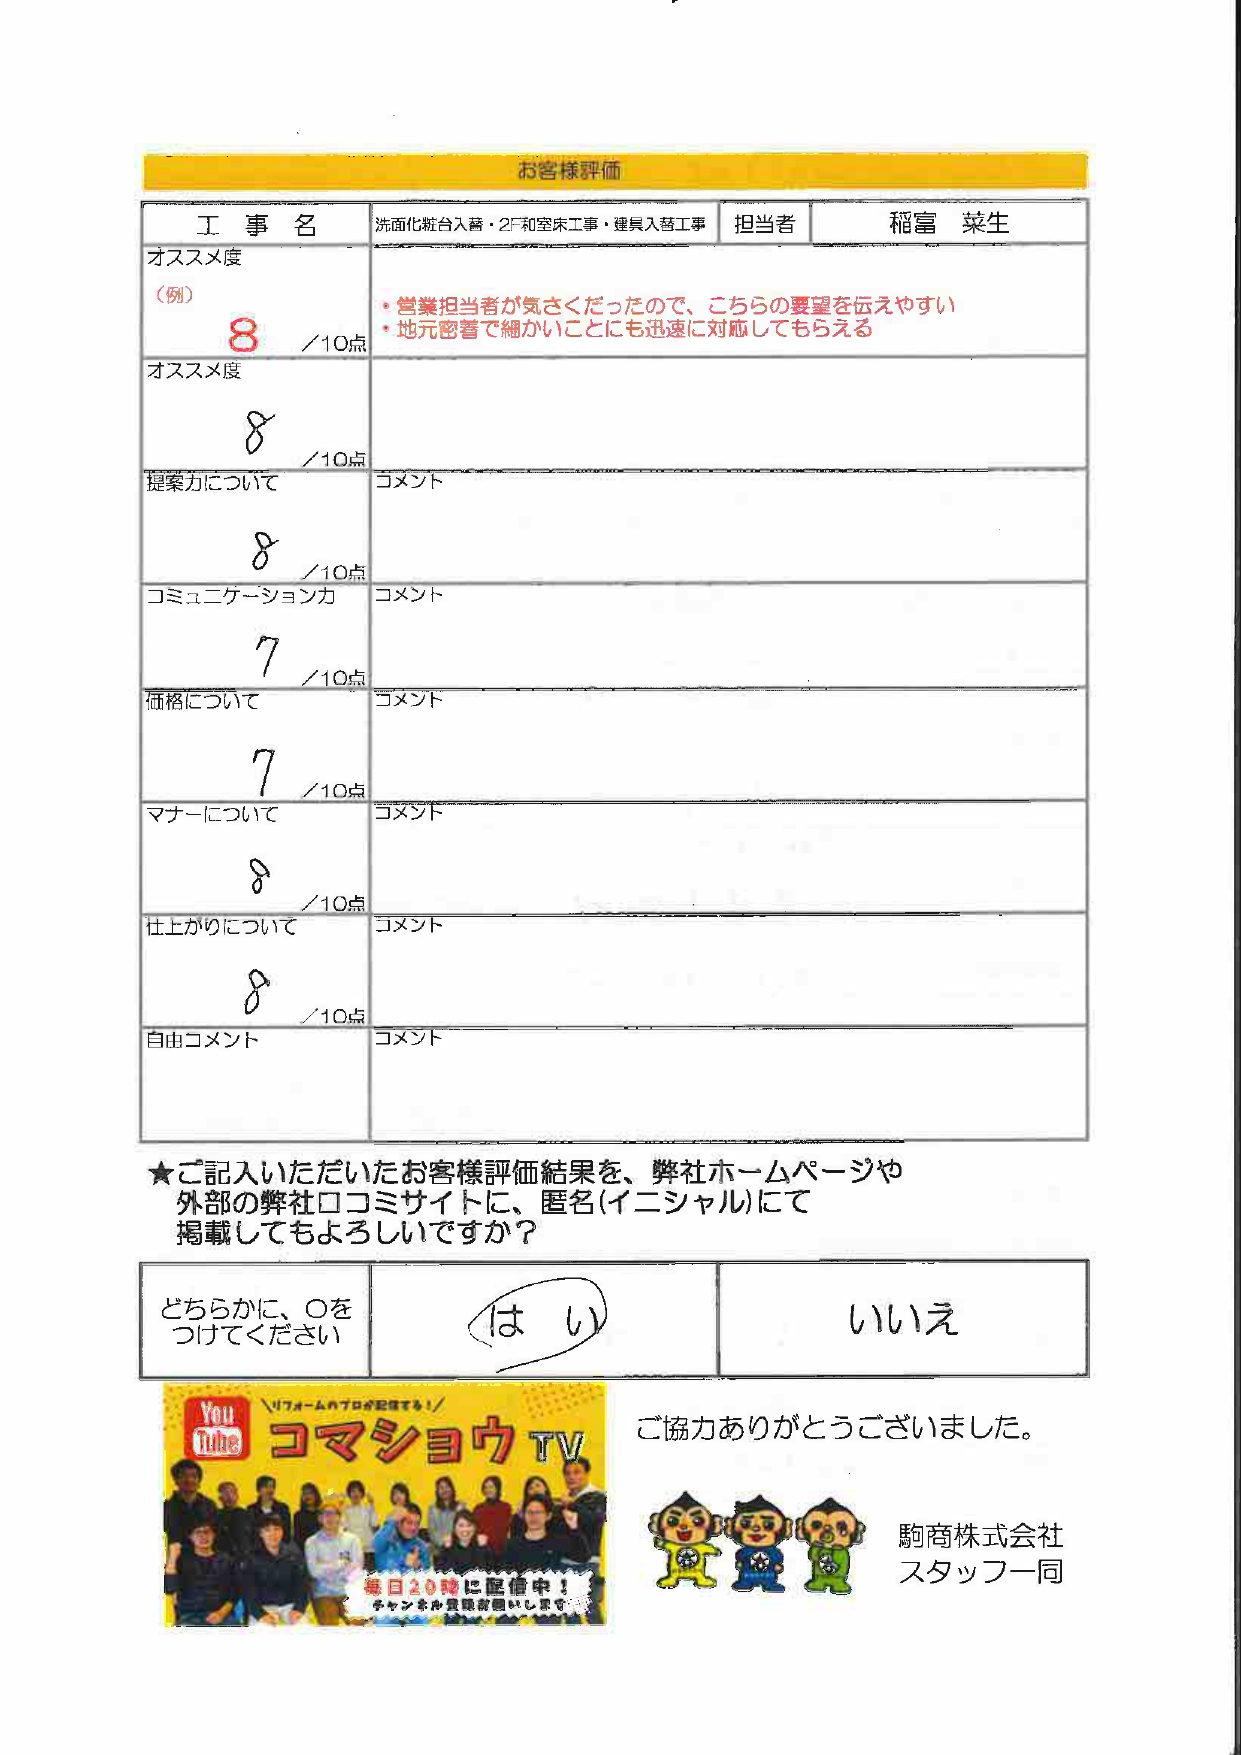 お客様評価
工 事 名 洗面化粧台入替・2F和室床工事・建具入替工事 担当者 稲富 菜生
オススメ度
（例）
・営業担当者が気さくだったので、こちらの要望を伝えやすい
・地元密着で細かいことにも迅速に対応してもらえる
8 ／10点
オススメ度
8 ／10点
提案力について コメント
8 ／10点
コミュニケーション力 コメント
7 ／10点
価格について コメント
7 ／10点
マナーについて コメント
8 ／10点
仕上がりについて コメント
8 ／10点
自由コメント コメント
★ご記入いただいたお客様評価結果を、弊社ホームページや
外部の弊社口コミサイトに、匿名(イニシャル)にて
掲載してもよろしいですか？
どちらかに、〇を
つけてください
はい いいえ
You Tube
\リフォームのプロが配信する！/
コマショウTV
毎日20時に配信中！
チャンネル登録お願いします
ご協力ありがとうございました。
駒商株式会社
スタッフ一同